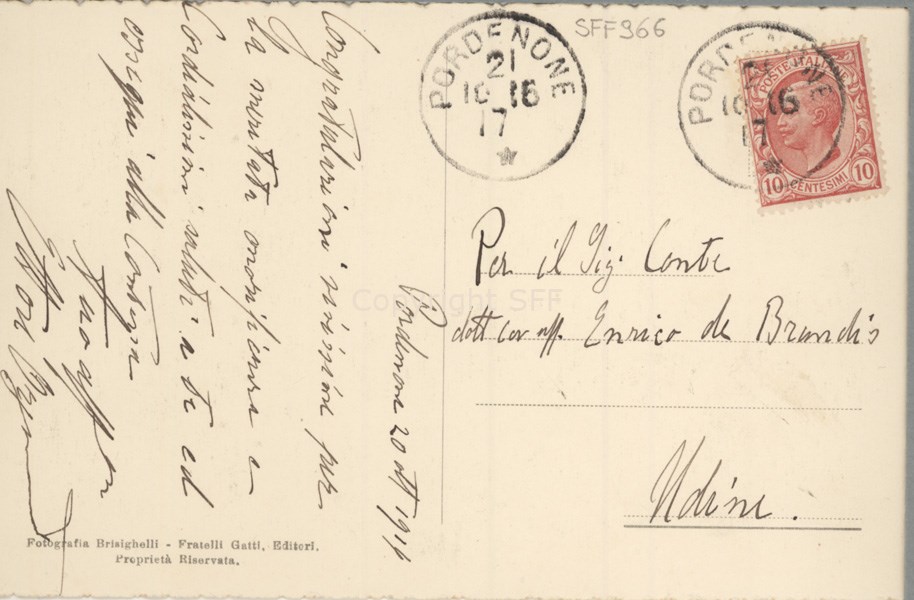 SFF966
PORDENONE
21
10 16
17
PORDENONE
21
10 16
17
POSTE ITALIANE
10 CENTESIMI 10
Per il Sig. Conte
dott cav uff. Enrico de Brandis
Udine.
Pordenone 20 ott 191
Congratulazioni vivissime per
la meritata onorificenza e
Cordialissimi saluti a te ed
ossequi alla Contessa
tuo aff
Copyright SFF
Fotografia Brisighelli - Fratelli Gatti, Editori.
Proprietà Riservata.